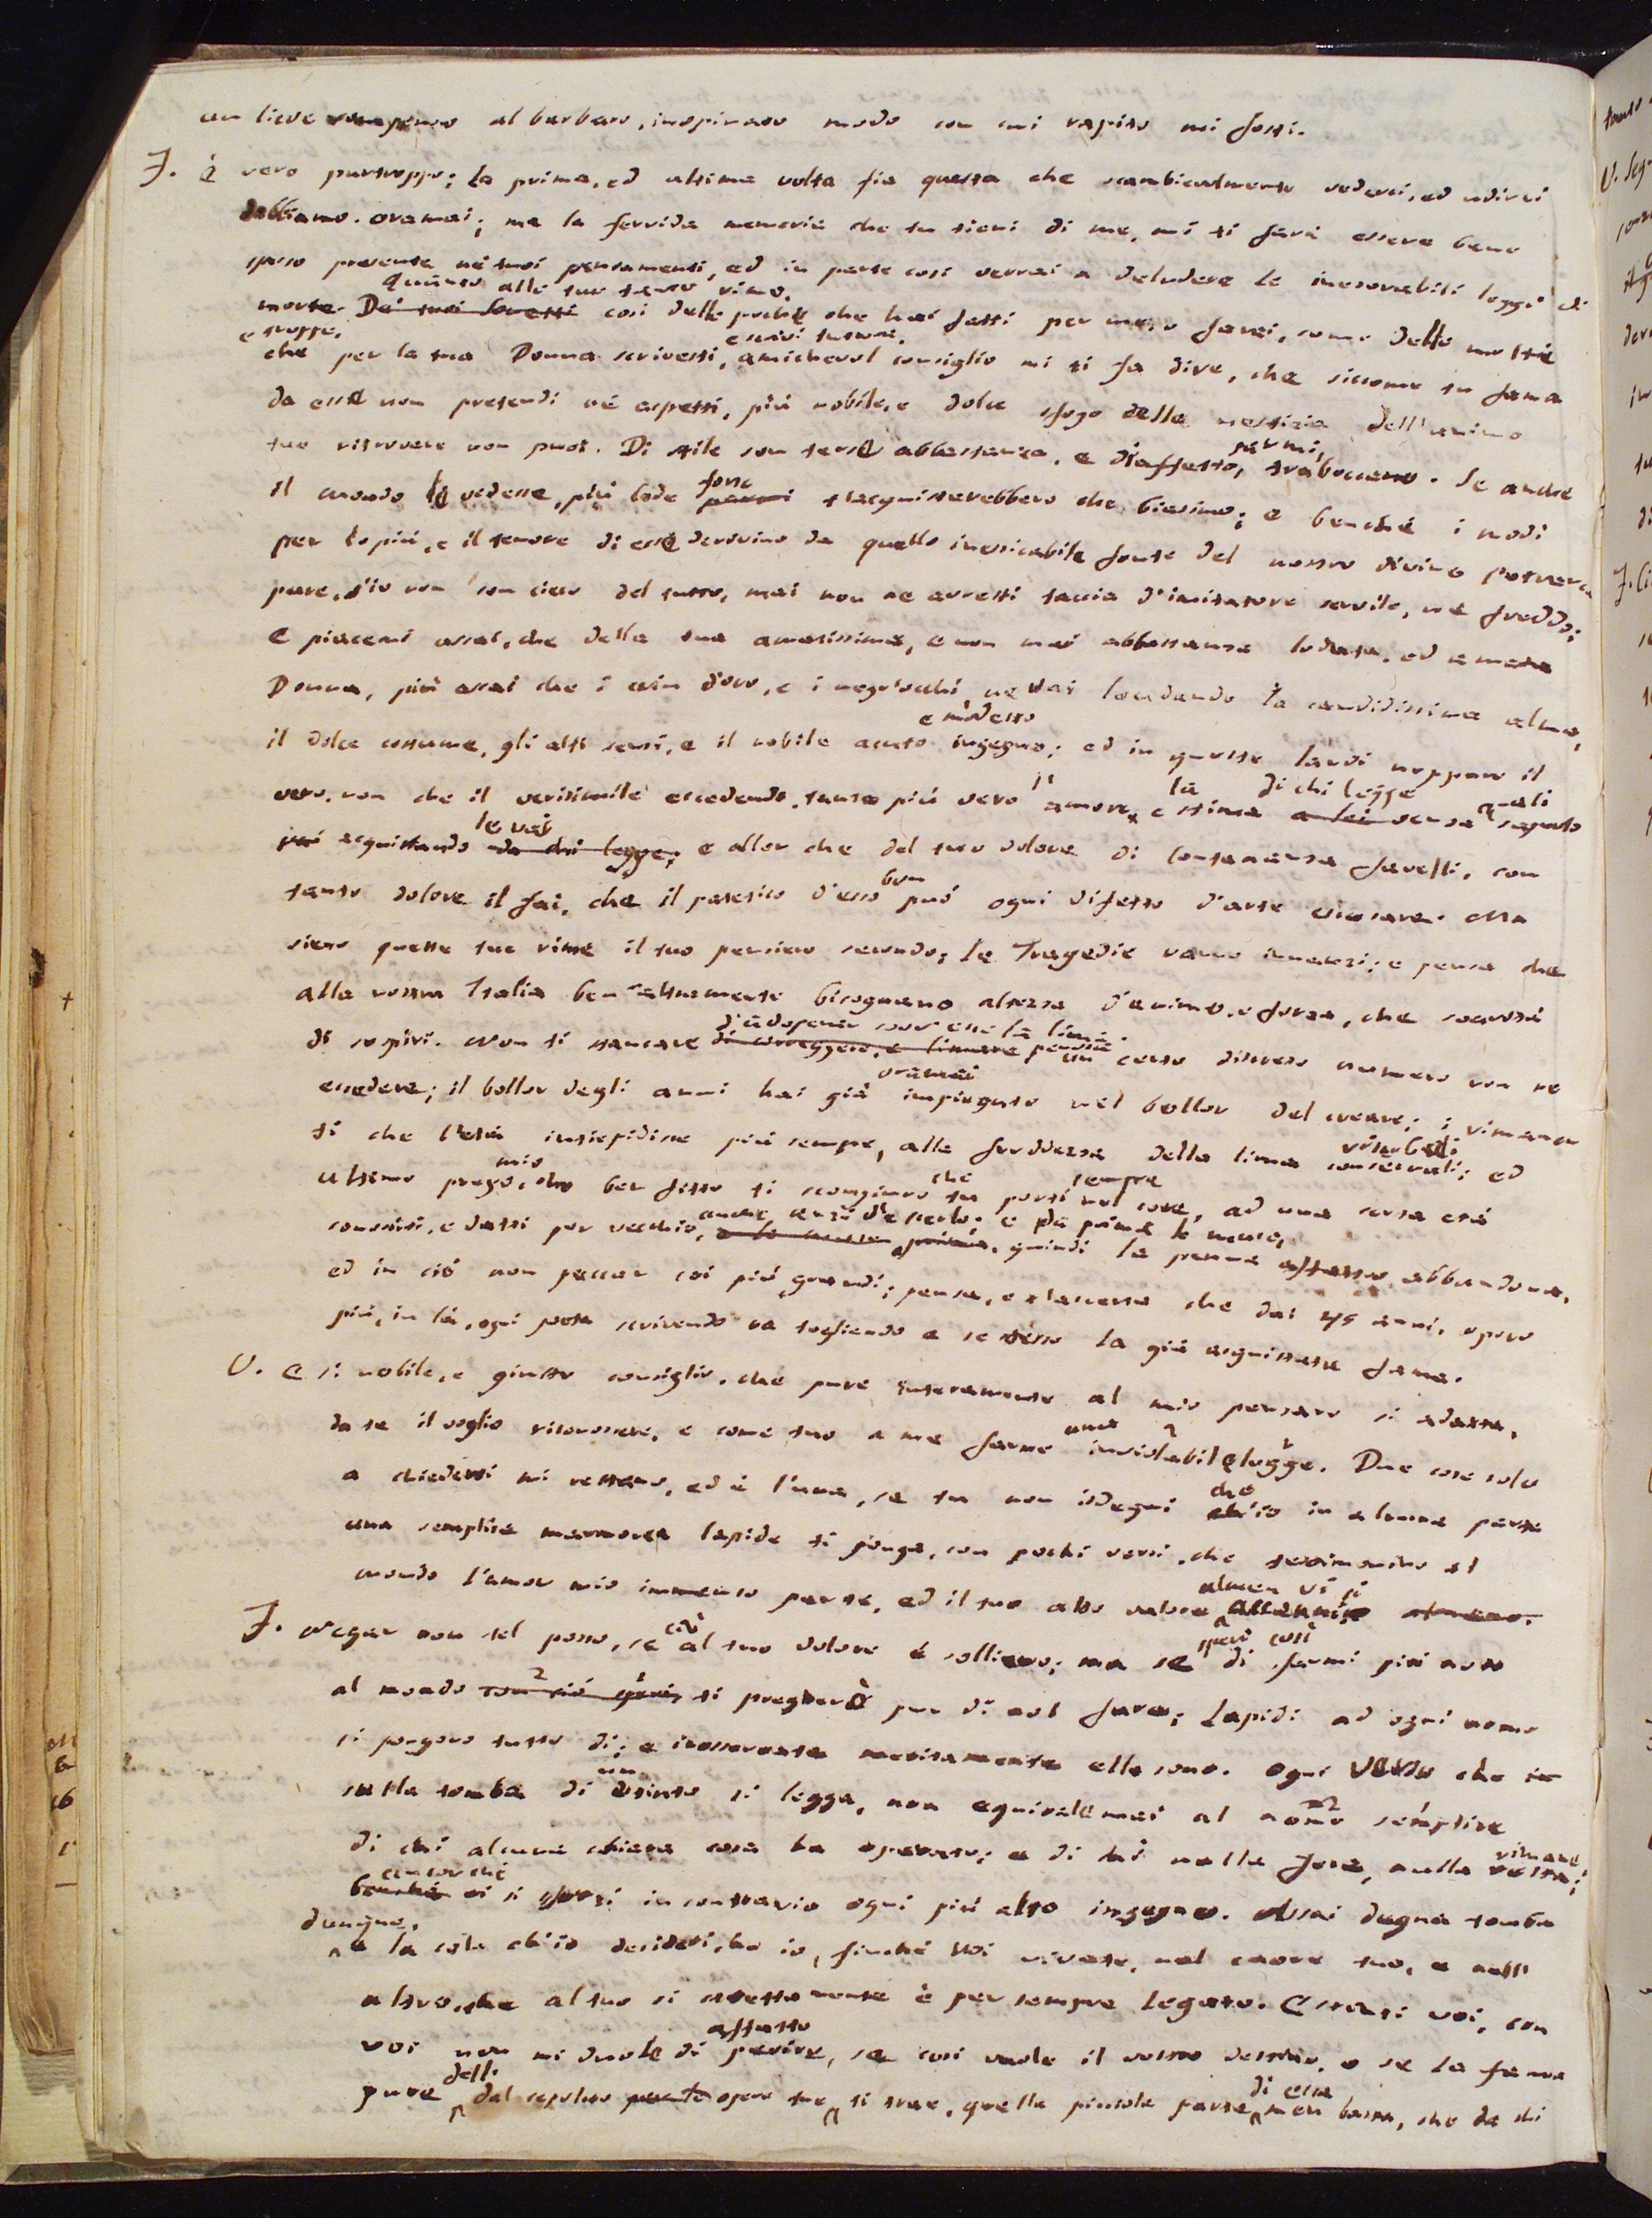 un lieve compenso al barbaro, inopinato modo con cui rapito mi fosti.
F. è vero purtroppo; la prima, ed ultima volta fia questa, che scambievolmente vederci, ed udirci
dobbiamo. oramai; ma la fervida memoria che tu tieni di me, mi ti farà essere bene
spesso presente ne' tuoi pensamenti, ed in parte così verrai a deludere le inesorabili leggi di
Quanto alle tue tante rime.
morte. Dei tuoi Sonetti così delle poche che hai fatti per me, o farai, come delle molte
e troppe, e scrivi tuttora,
che per la tua Donna scrivesti, amichevol consiglio mi ti fa dire, che siccome tu fama
da esse non pretendi nè aspetti, più nobile, e dolce sfogo della mestizia dell'animo
tuo ritrovare non puoi. Di stile son terse abbastanza, e d'affetto, parmi, traboccano. Se anche
il mondo le vedesse, più lode forse parmi t'acquisterebbero che biasimo; e benchè i modi
per lo più, e il tenore di esse derivino da quello inessicabile fonte del nostro divino Petrarca
pure, s'io non son cieco del tutto, mai non ne avresti taccia d'imitatore servile, nè freddo;
e piacemi assai, che della tua amatissima, e non mai abbastanza lodata, ed amata
Donna, più assai che i crin d'oro, e i negr'occhi ne vai laudando la candidissima alma,
e modesto
il dolce costume, gli alti sensi, e il nobile acuto ingegno; ed in queste laudi neppure il
l' la di chi legge quali
vero, non che il verisimile eccedendo, tanto più vero amore, e stima a lei senza saputo
le vai
più acquistando da chi legge; e allor che del tuo dolore di lontananza favelli, con
ben
tanto dolore il fai, che il patetico d'esso può ogni difetto d'arte escusare. Ma
sieno queste tue rime il tuo pensiero secondo; le Tragedie vanno innanzi; e pensa che
alla nostra Italia ben altramente bisognano altezza d'animo, e forza, che soavità
d'adoperar sovr'esse la lima.
di sospiri. Non ti stancare di correggere, e limare perchè un certo discreto numero non ne
oramai
eccedere; il bollor degli anni hai già impiegato nel bollor del creare; i rimanenti
che l'età intiepidisce più sempre, alla freddezza della lima conservali; ed
mio che sempre
ultimo prego, che ben fitto ti scongiuro tu porti nel core, ad una certa età
anche anzi d'esserlo; e da prima la
conoscerti, e darti per vecchio, quindi la penna affatto abbandona,
ed in ciò non peccar coi più grandi; pensa, e t'accerta che dai 45 anni, o poco
più, in là, ogni poeta scrivendo va togliendo a se stesso la già acquistata fama.
V. e sì nobile, e giusto consiglio, che pure interamente al mio pensare si adatta,
una 2 1
da te il voglio riconoscere, e come tuo a me farne inviolabile legge. Due cose sole
che
a chiederti mi restano, ed è l'una, se tu non isdegni ch'io in alcuna parte
una semplice marmorea lapide ti ponga, con pochi versi, che testimonino al
almen vi si
mondo l'amor mio immenso per te, ed il tuo alto valore accennino almeno.
ciò però così
F. Negar non tel posso, se al tuo dolore è sollievo; ma se di farmi più noto
al mondo con ciò ti pregherò pur di nol fare; lapidi ad ogni uomo
si pongono tutto dì; e inosservate meritamente elle sono. Ogni verso che in
un
sulla tomba di estinto si legga, non equivale mai al nome semplice
rimane;
di chi alcuna chiara cosa ha operato; e di chi nulla fece, nulla resta;
ancorchè
benchè vi si sforzi in contrario ogni più alto ingegno. Assai degna tomba
dunque,
e la sola ch'io desideri, ho io, finchè voi vivete, nel cuore tuo, e nell'
altro, che al tuo sì strettamente è per sempre legato. Estinti voi, con
affatto
voi non mi duole di perire, se così vuole il vostro destino. o se la fama
dell' di essa
pure dal sepolcro opere tue ti trae, quella piccola parte men bassa, che da chi